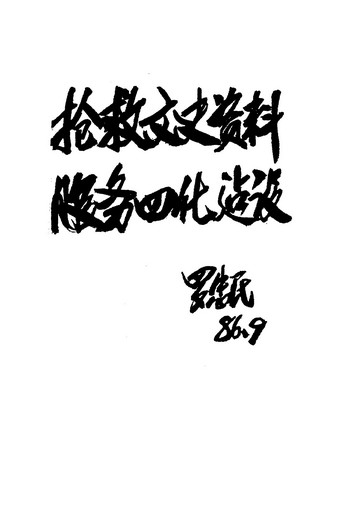 抢救文史资料
服务四化建设
罗生民
86.9